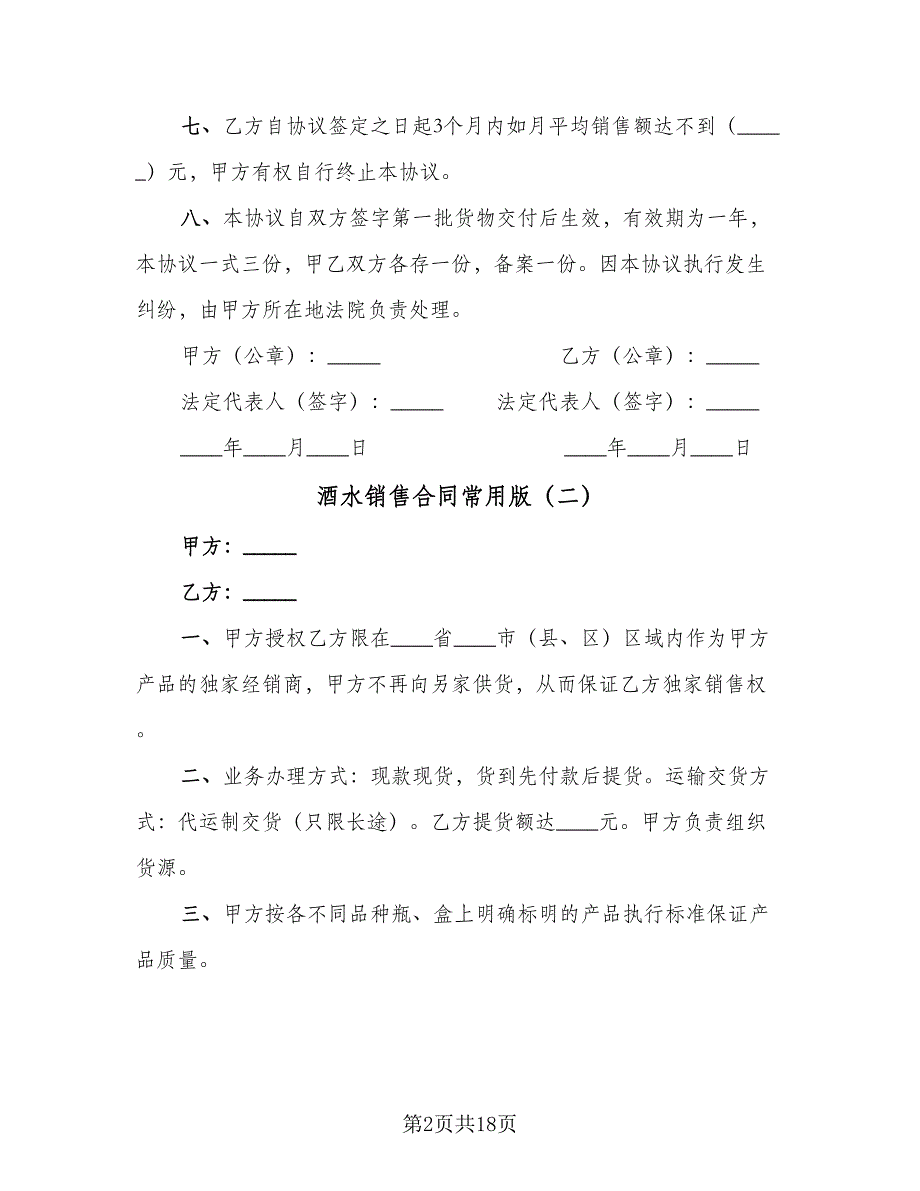 七、乙方自协议签定之日起3个月内如月平均销售额达不到（____
_）元，甲方有权自行终止本协议。
八、本协议自双方签字第一批货物交付后生效，有效期为一年，
本协议一式三份，甲乙双方各存一份，备案一份。因本协议执行发生
纠纷，由甲方所在地法院负责处理。
甲方（公章）：_____ 乙方（公章）：_____
法定代表人（签字）：_____ 法定代表人（签字）：_____
____年____月____日 ____年____月____日
酒水销售合同常用版（二）
甲方：_____
乙方：_____
一、甲方授权乙方限在____省____市（县、区）区域内作为甲方
产品的独家经销商，甲方不再向另家供货，从而保证乙方独家销售权
。
二、业务办理方式：现款现货，货到先付款后提货。运输交货方
式：代运制交货（只限长途）。乙方提货额达____元。甲方负责组织
货源。
三、甲方按各不同品种瓶、盒上明确标明的产品执行标准保证产
品质量。
第2页共18页